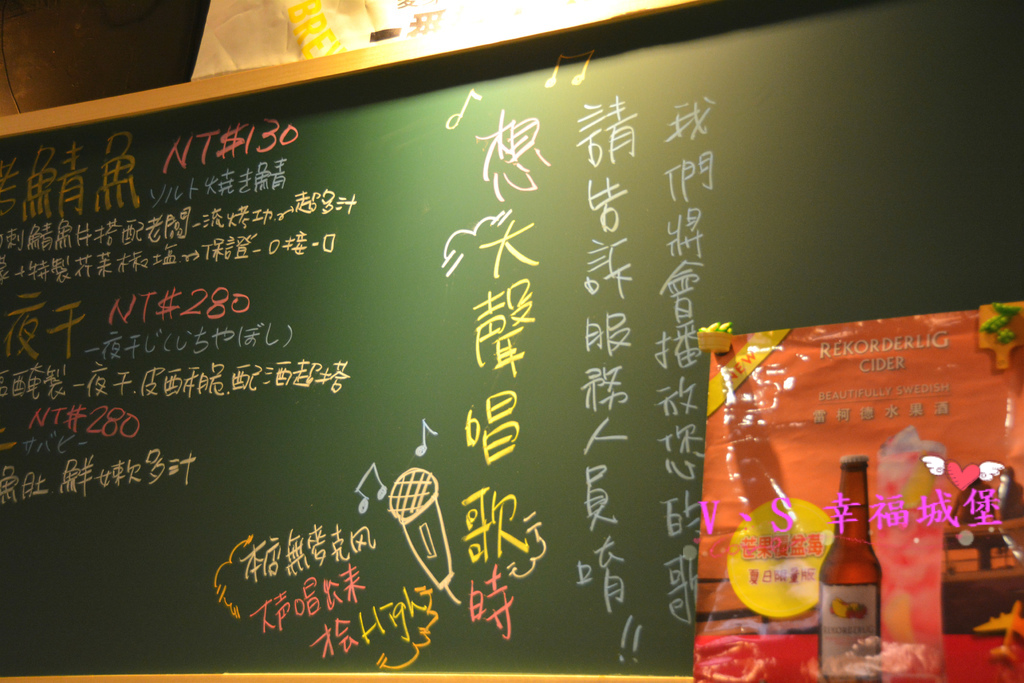 烤鯖魚 NT$130
ソルト焼き鯖
刺鯖魚片搭配老闆一流烤功~超多汁
+特製芥茉椒塩~保證一口接一口
夜干 NT$280
一夜干し(いちやぼし)
醃製一夜干.皮酥脆.配酒超搭
NT$280
サバヒー
魚肚.鮮嫩多汁
想大聲唱歌時
請告訴服務人員唷!!
我們將會播放您的歌
本店無麥克風
大声唱出來
才会High
NEW
REKORDERLIG
CIDER
BEAUTIFULLY SWEDISH
雷柯德水果酒
芒果覆盆莓
夏日限量版
REKORDERLIG
V、S 幸福城堡